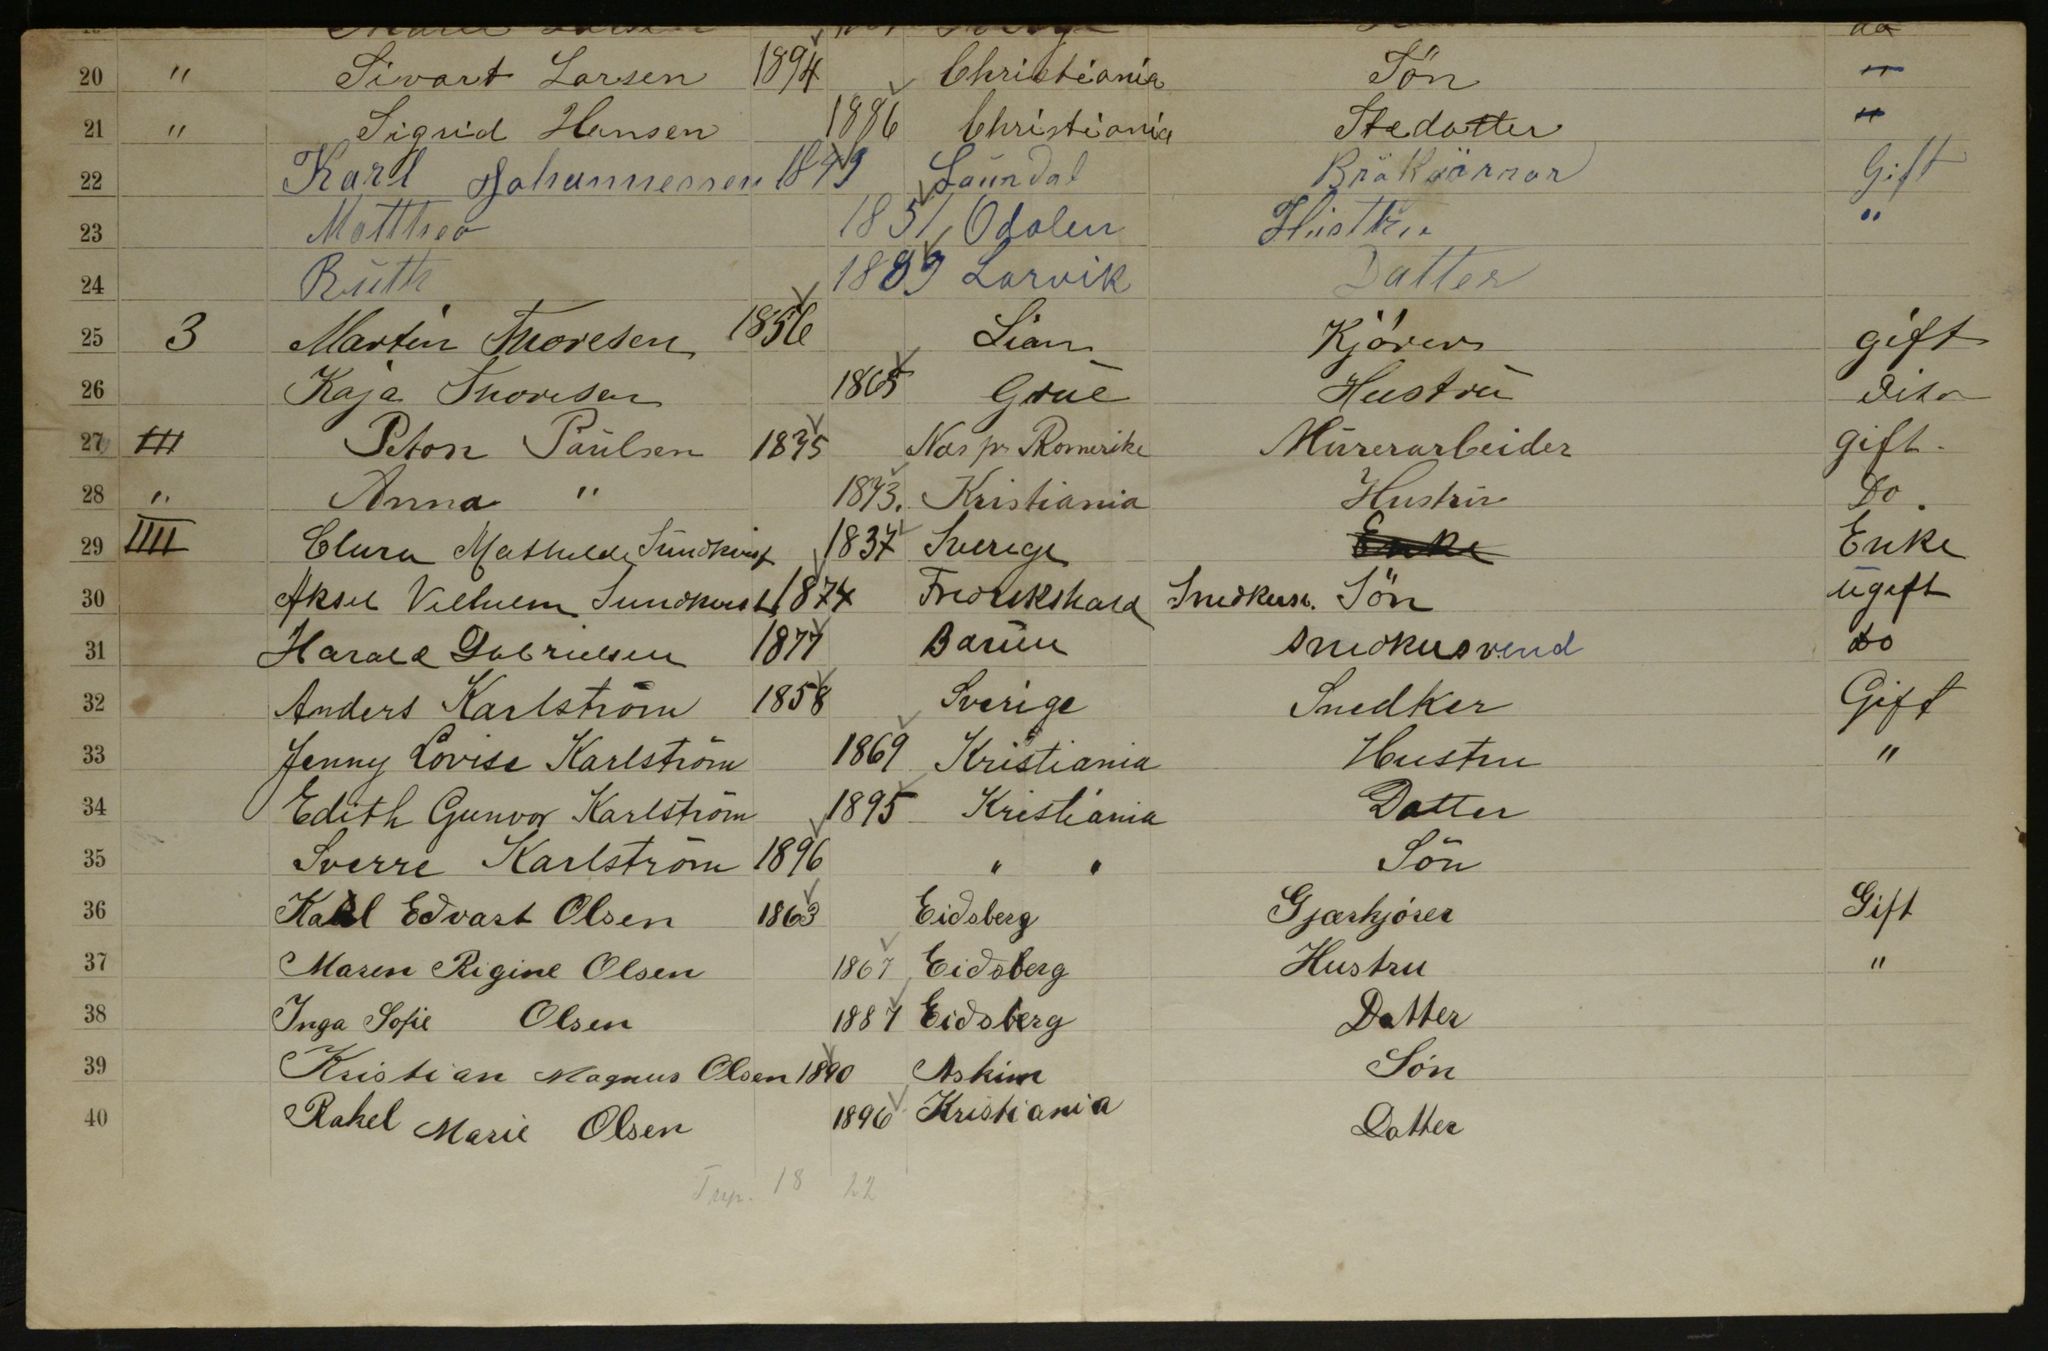 20 " Sivart Larsen 1894 Christiania Sön "
21 " Sigrid Hansen 1886 Christiania Stedatter "
22 Karl Johannessen 1849 Gift
23 Matthea 1851 Odalen Hustru "
24 Ruth 1889 Larvik Datter
25 3 Martin Thoresen 1856 Lian Kjörer gift
26 Kaja Thoresen 1865 Grue Hustru dito
27 III Peton Paulsen 1845 Næs på Romerike Mürerarbeider gift.
28 " Anna " 1843. Kristiania Hustru Do.
29 IIII Clara Mathilde Sundkvist 1837 Sverige Enke Enke
30 Aksel Vilhelm Sundkvist 1874 Fredrikshald Snedkersv. Sön ugift
31 Harald Gabrielsen 1877 Bærum snedkersvend do
32 Anders Karlström 1858 Sverige Snedker Gift
33 Jenny Lovise Karlström 1869 Kristiania Hustru "
34 Edith Gunvor Karlström 1895 Kristiania Datter
35 Sverre Karlström 1896 " " Sön
36 Karl Edvart Olsen 1863 Eidsberg Gjærkjörer Gift
37 Maren Rigine Olsen 1867 Eidsberg Hustru "
38 Inga Sofie Olsen 1887 Eidsberg Datter
39 Kristian Magnus Olsen 1890 Askim Sön
40 Rakel Marie Olsen 1896 Kristiania Datter
18 22